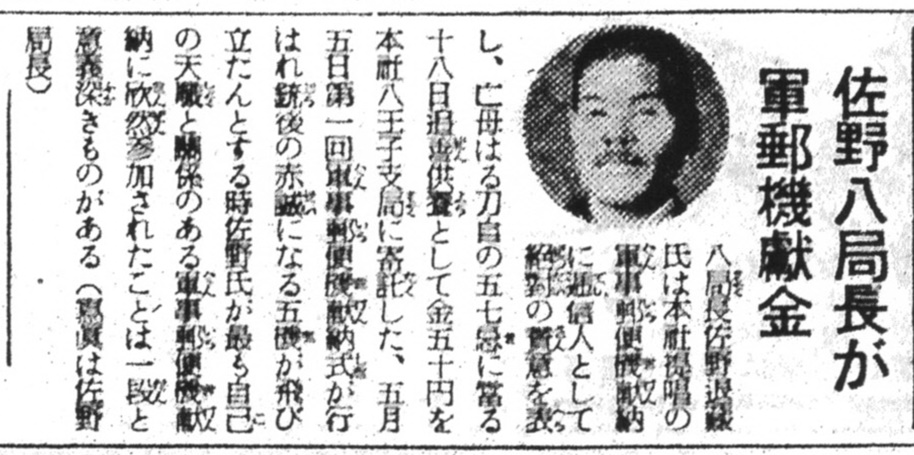 佐野八局長が
軍郵機献金
八局長佐野退蔵
氏は本社提唱の
軍事郵便機献納
に逓信人として
絶對の賛意を表
し、亡母はる刀自の五七忌に當る
十八日追善供養として金五十円を
本社八王子支局に寄託した、五月
五日第一回軍事郵便機献納式が行
はれ銃後の赤誠になる五機が飛び
立たんとする時佐野氏が最も自己
の天職と關係のある軍事郵便機献
納に欣然参加されたことは一段と
意義深きものがある（寫眞は佐野
局長）